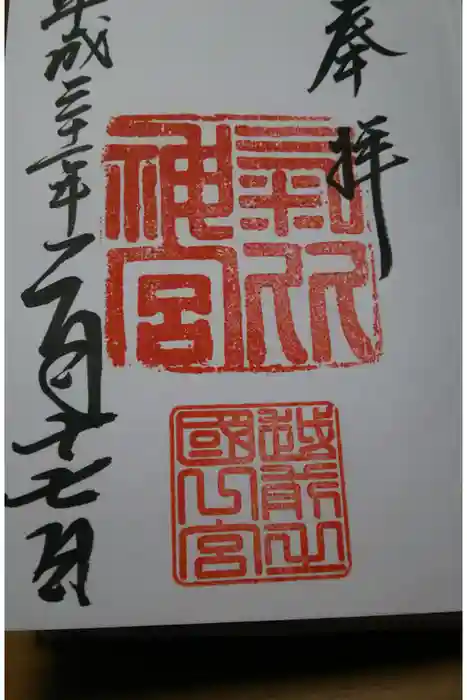 奉拝
氣比神宮
越前之國一宮
平成三十一年一月十七日